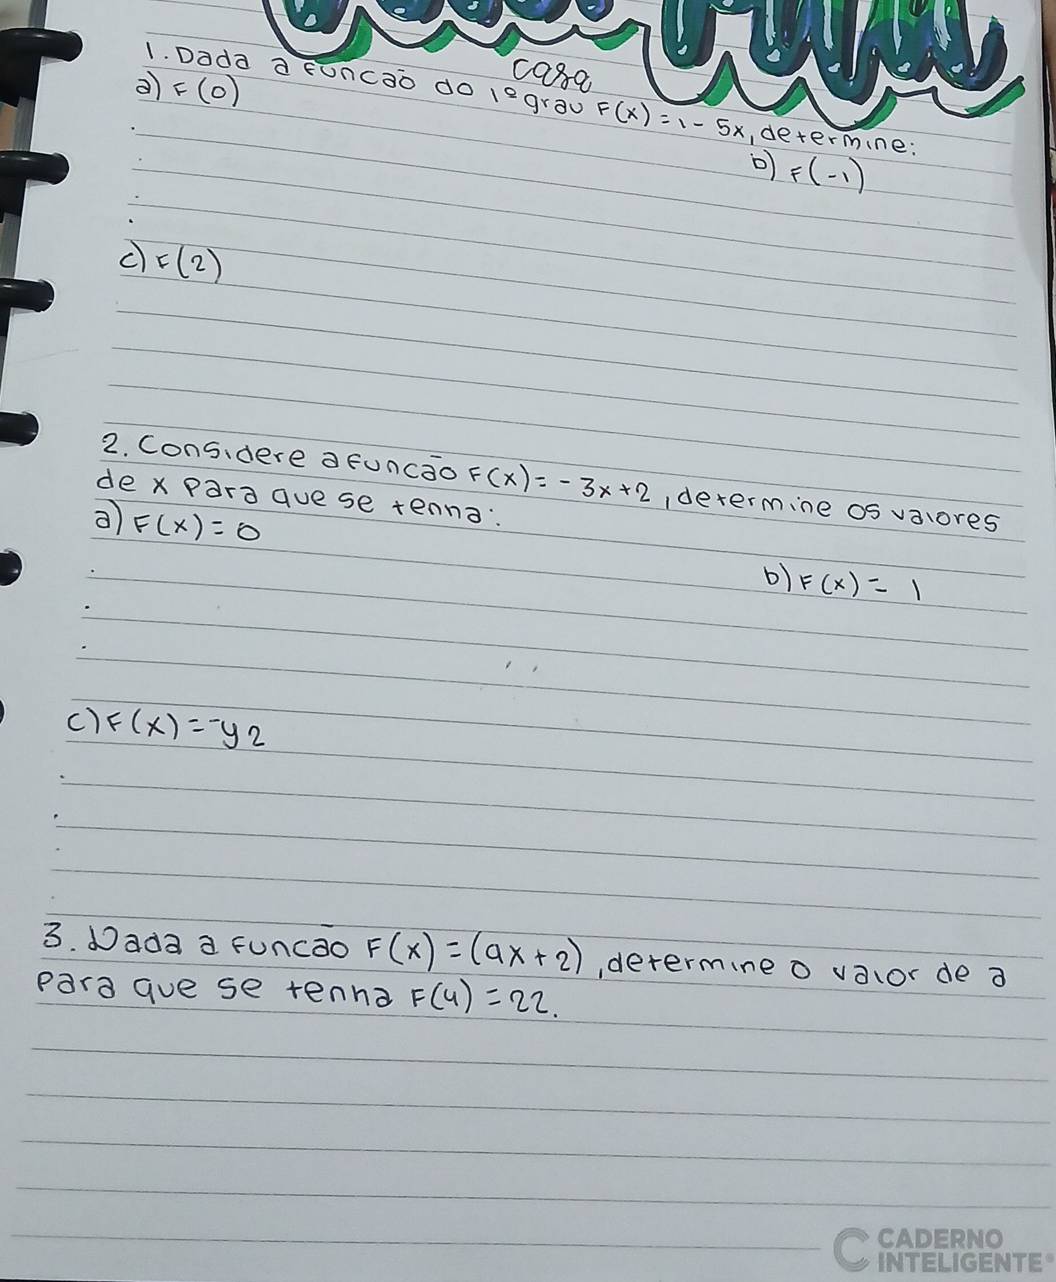 casa
1. Dada a funcão do 1º grau F(x) = 1 - 5x, determine:
a) F(0)
b) F(-1)
c) F(2)
2. Considere a funcão F(x) = -3x + 2, determine os valores
de x para que se tenha:
a) F(x) = 0
b) F(x) = 1
c) F(x) = -y2
3. Dada a funcão F(x) = (ax + 2), determine o valor de a
para que se tenha F(4) = 22.
CADERNO
INTELIGENTE